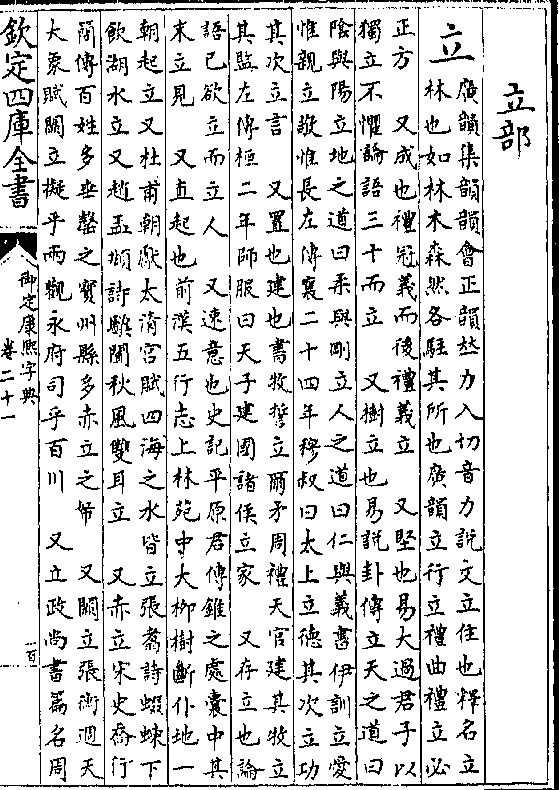 立部
立
廣韻集韻韻會正韻𠀤力入切音力說文立住也釋名立
林也如林木森然各駐其所也廣韻立行立禮曲禮立必
正方　又成也禮冠義而後禮義立　又堅也易大過君子以
獨立不懼論語三十而立　又樹立也易說卦傳立天之道曰
陰與陽立地之道曰柔與剛立人之道曰仁與義書伊訓立愛
惟親立敬惟長左傳襄二十四年穆叔曰太上立德其次立功
其次立言　又置也建也書牧誓立爾矛周禮天官建其牧立
其監左傳桓二年師服曰天子建國諸侯立家　又存立也論
語己欲立而立人　又速意也史記平原君傳錐之處囊中其
末立見　又直起也前漢五行志上林苑中大柳樹斷仆地一
朝起立又杜甫朝獻太清宮賦四海之水皆立張翥詩蝃蝀下
飲湖水立又趙孟頫詩騕闐秋風雙耳立　又赤立宋史喬行
簡傳百姓多垂罄之室州縣多赤立之帑　又闕立張衡週天
大象賦闕立擬乎兩觀永府司乎百川　又立政尚書篇名周
欽定四庫全書
御定康熙字典
卷二十一
百